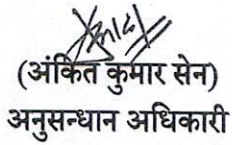 (अंकित कुमार सेन)
अनुसन्धान अधिकारी